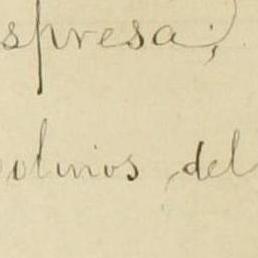 spresa;
olinos del